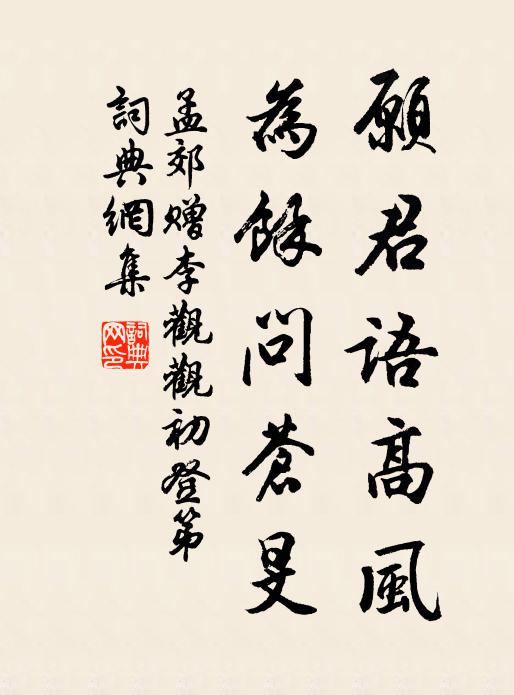 願君語高風
為餘問蒼旻
孟郊贈李觀觀初登第
詞典網集
詞典網印